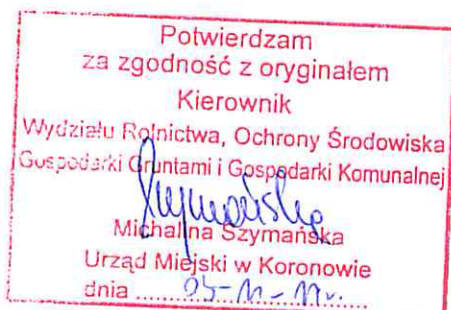 Potwierdzam
za zgodność z oryginałem
Kierownik
Wydziału Rolnictwa, Ochrony Środowiska
Gospodarki Gruntami i Gospodarki Komunalnej
Szymańska
Michalina Szymańska
Urząd Miejski w Koronowie
dnia